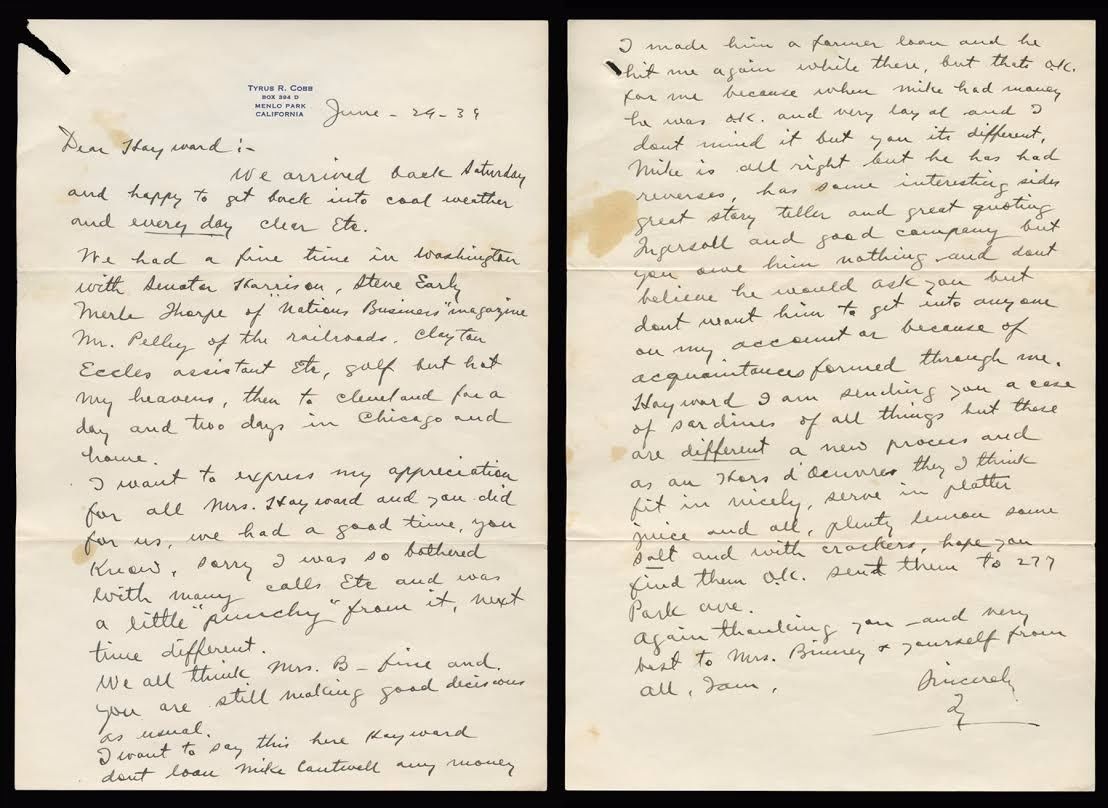 TYRUS R. COBB
BOX 394 D
MENLO PARK
CALIFORNIA
June - 29 - 39
Dear Hayward :-
We arrived back Saturday
and happy to get back into cool weather
and every day clear Etc.
We had a fine time in Washington
with Senator Harrison, Steve Early
Merle Thorpe of "Nations Business" magazine
Mr. Pelley of the railroads. Clayton
Eccles assistant Etc, golf but hot
my heavens, then to Cleveland for a
day and two days in Chicago and
home.
I want to express my appreciation
for all Mrs. Hayward and you did
for us, we had a good time, you
know, sorry I was so bothered
with many calls Etc and was
a little "punchy" from it, next
time different.
We all think Mrs. B - fine and.
you are still making good decisions
as usual.
I want to say this here Hayward
dont loan Mike Cantwell any money
I made him a former loan and he
hit me again while there, but thats O.K.
for me because when Mike had money
he was O.K. and very loyal and I
dont mind it but you its different,
Mike is all right but he has had
reverses, has some interesting sides
great story teller and great quoting
Ingersoll and good company but
you owe him nothing and dont
believe he would ask you but
dont want him to get into anyone
on my account or because of
acquaintances formed through me.
Hayward I am sending you a case
of sardines of all things but these
are different a new process and
as an Hors d'Oeuvres they I think
fit in nicely, serve in platter
juice and all, plenty lemon some
salt and with crackers, hope you
find them O.K. sent them to 277
Park ave.
Again thanking you - and very
best to Mrs. Binney & yourself from
all, I am,
Sincerely
Ty